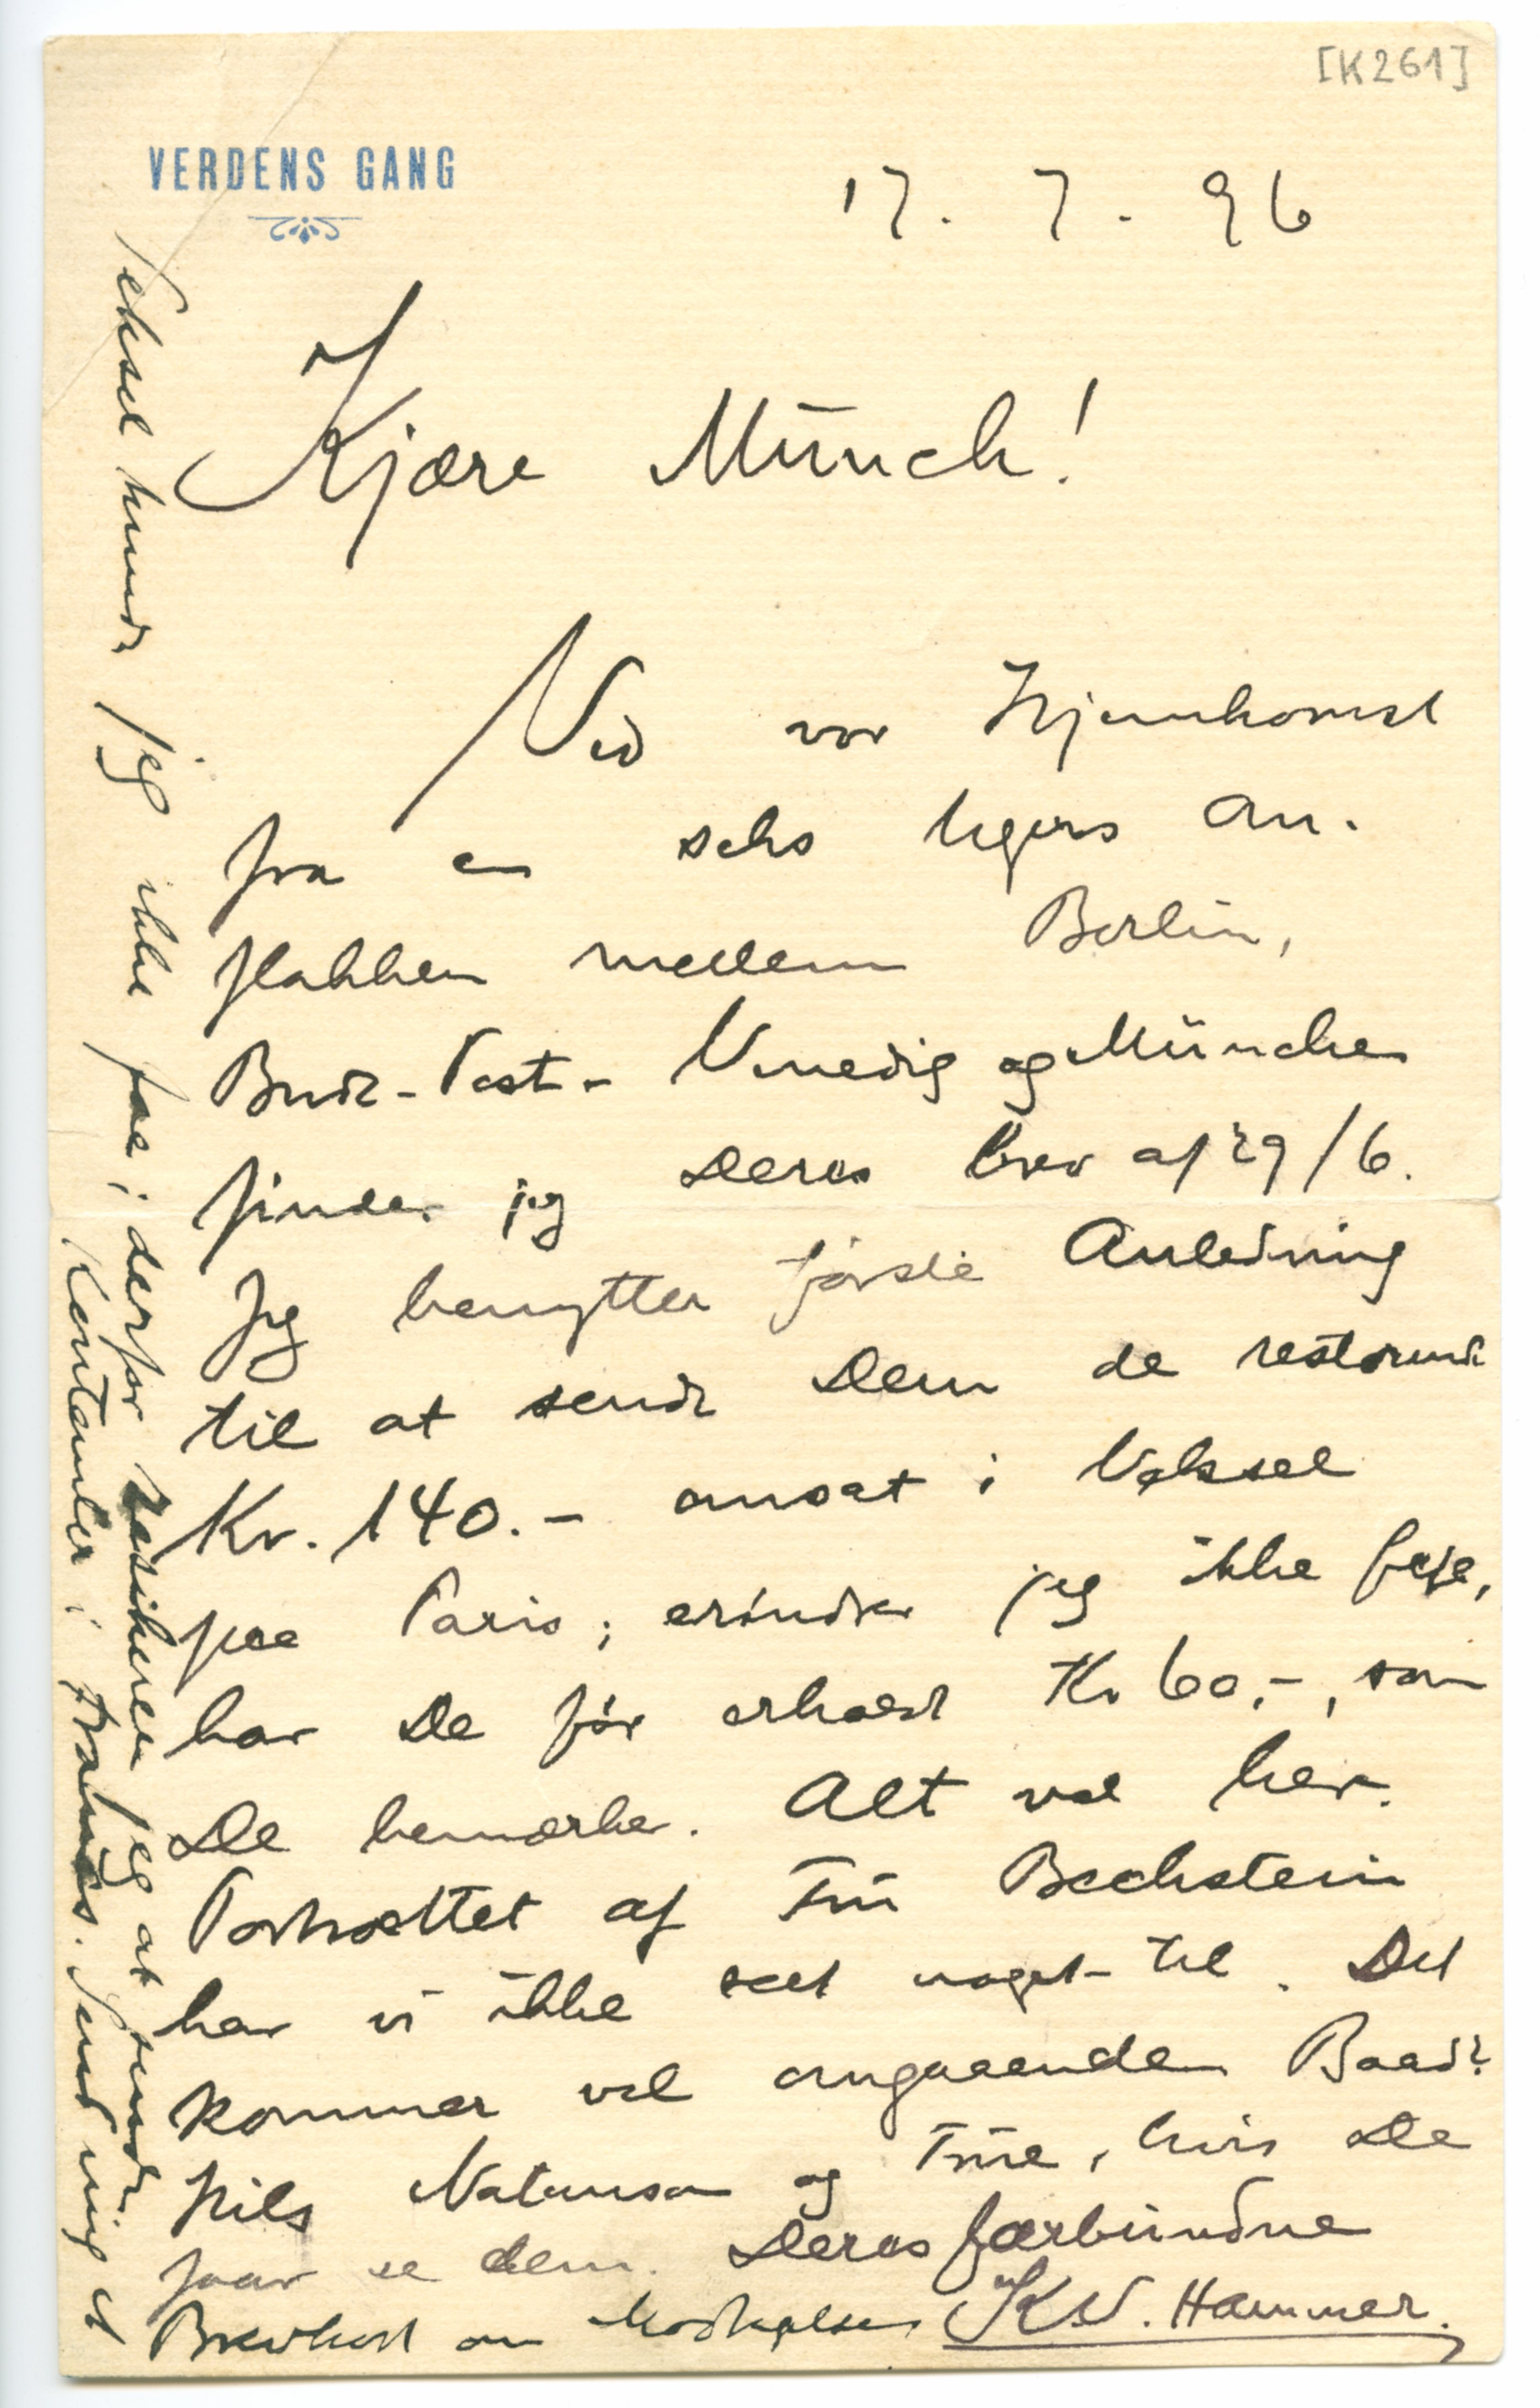 [K261]
VERDENS GANG
17. 7. 96
Kjære Münch!
Ved vor Hjemkomst
fra en seks Ugers Om-
flakken mellem Berlin,
Buda-Pest- Venedig og München
finder jeg Deres brev af 29/6.
Jeg benytter første Anledning
til at sende Dem de resterende
Kr. 140.- omsat i Veksel
paa Paris; erindrer jeg ikke feil,
har De før erholdt Kr 60,-, som
De bemærker. Alt vel her.
Portrættet af Frü Bechstein
har vi ikke seet noget til. Det
kommer vel omgaaende Baad?
Hils Natanson og Früe, hvis De
faar se dem. Deres forbündne
KV. Hammer.
Veksel kunde jeg ikke faa; derfor risikerer jeg at sende
Kontanter i Francs. Send mig et
Brevkort om Modtagelsen